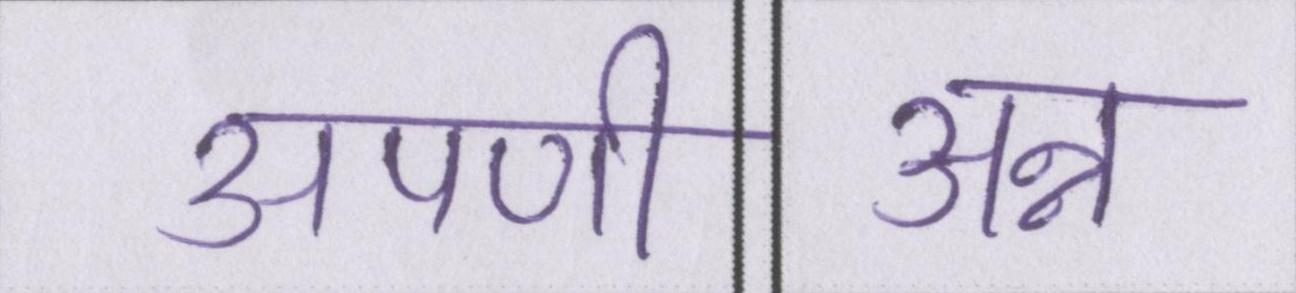 अपणी अन्न